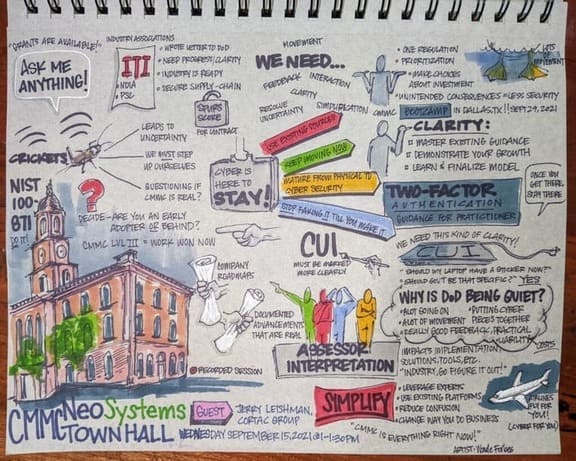 "GRANTS ARE AVAILABLE!"
ASK ME
ANYTHING!
INDUSTRY ASSOCIATIONS
ITI
• NDIA
• PSC
• WROTE LETTER TO DOD
• NEED PROGRESS/CLARITY
• INDUSTRY IS READY
• SECURE SUPPLY-CHAIN
SPURS
SCORE
FOR CONTRACT
MOVEMENT
WE NEED...
FEEDBACK INTERACTION
CLARITY
RESOLVE
UNCERTAINTY
SIMPLIFICATION
CMMC
• ONE REGULATION
• PRIORITIZATION
• MAKE CHOICES
ABOUT INVESTMENT
LOTS OF
MOVEMENT
"UNINTENDED CONSEQUENCES = LESS SECURITY
BOOTCAMP IN DALLAS, TX!! SEPT 29, 2021
CRICKETS
LEADS TO
UNCERTAINTY
WE MUST STEP
UP OURSELVES
QUESTIONING IF
CMMC IS REAL?
CYBER IS
HERE TO
STAY!
USE EXISTING SOURCES
KEEP MOVING NOW
MATURE FROM PHYSICAL TO
CYBER SECURITY
STOP FAKING IT TILL YOU MAKE IT
CLARITY:
MASTER EXISTING GUIDANCE
DEMONSTRATE YOUR GROWTH
LEARN & FINALIZE MODEL
TWO-FACTOR
AUTHENTICATION
GUIDANCE FOR PRACTITIONER
ONCE YOU
GET THERE,
STAY THERE
NIST
100-
871
DO IT!
?
DECIDE - ARE YOU AN EARLY
ADOPTER OR BEHIND?
CMMC LVL III = WORK WON NOW
CUI
MUST BE MARKED
MORE CLEARLY
WE NEED THIS KIND OF CLARITY!
CUI
"SHOULD MY LAPTOP HAVE A STICKER NOW?"
"SHOULD GUY BE THAT SPECIFIC?" YES
COMPANY
ROADMAPS
DOCUMENTED
ADVANCEMENTS
THAT ARE REAL
ASSESSOR
INTERPRETATION
WHY IS DoD BEING QUIET?
• ALOT GOING ON
• ALOT OF MOVEMENT
PUTTING CYBER
PIECES TOGETHER
• REALLY GOOD FEEDBACK, PRACTICAL
LIABILITY
COSTS
IMPACTS IMPLEMENTATION,
SOLUTIONS, TOOLS, ETC.
"INDUSTRY, GO FIGURE IT OUT!"
RECORDED SESSION
SIMPLIFY
• LEVERAGE EXPERTS
• USE EXISTING PLATFORMS
• REDUCE CONFUSION
• CHANGE WAY YOU DO BUSINESS
"CMMC IS EVERYTHING RIGHT NOW!"
AIRLINES
FLY FOR
YOU!
(CYBER FOR YOU)
CMMC NeoSystems
TOWN HALL
GUEST
JERRY LEISHMAN,
CORTAC GROUP
WEDNESDAY SEPTEMBER 15, 2021 @ 1-1:30PM
ARTIST: Wade Forbes